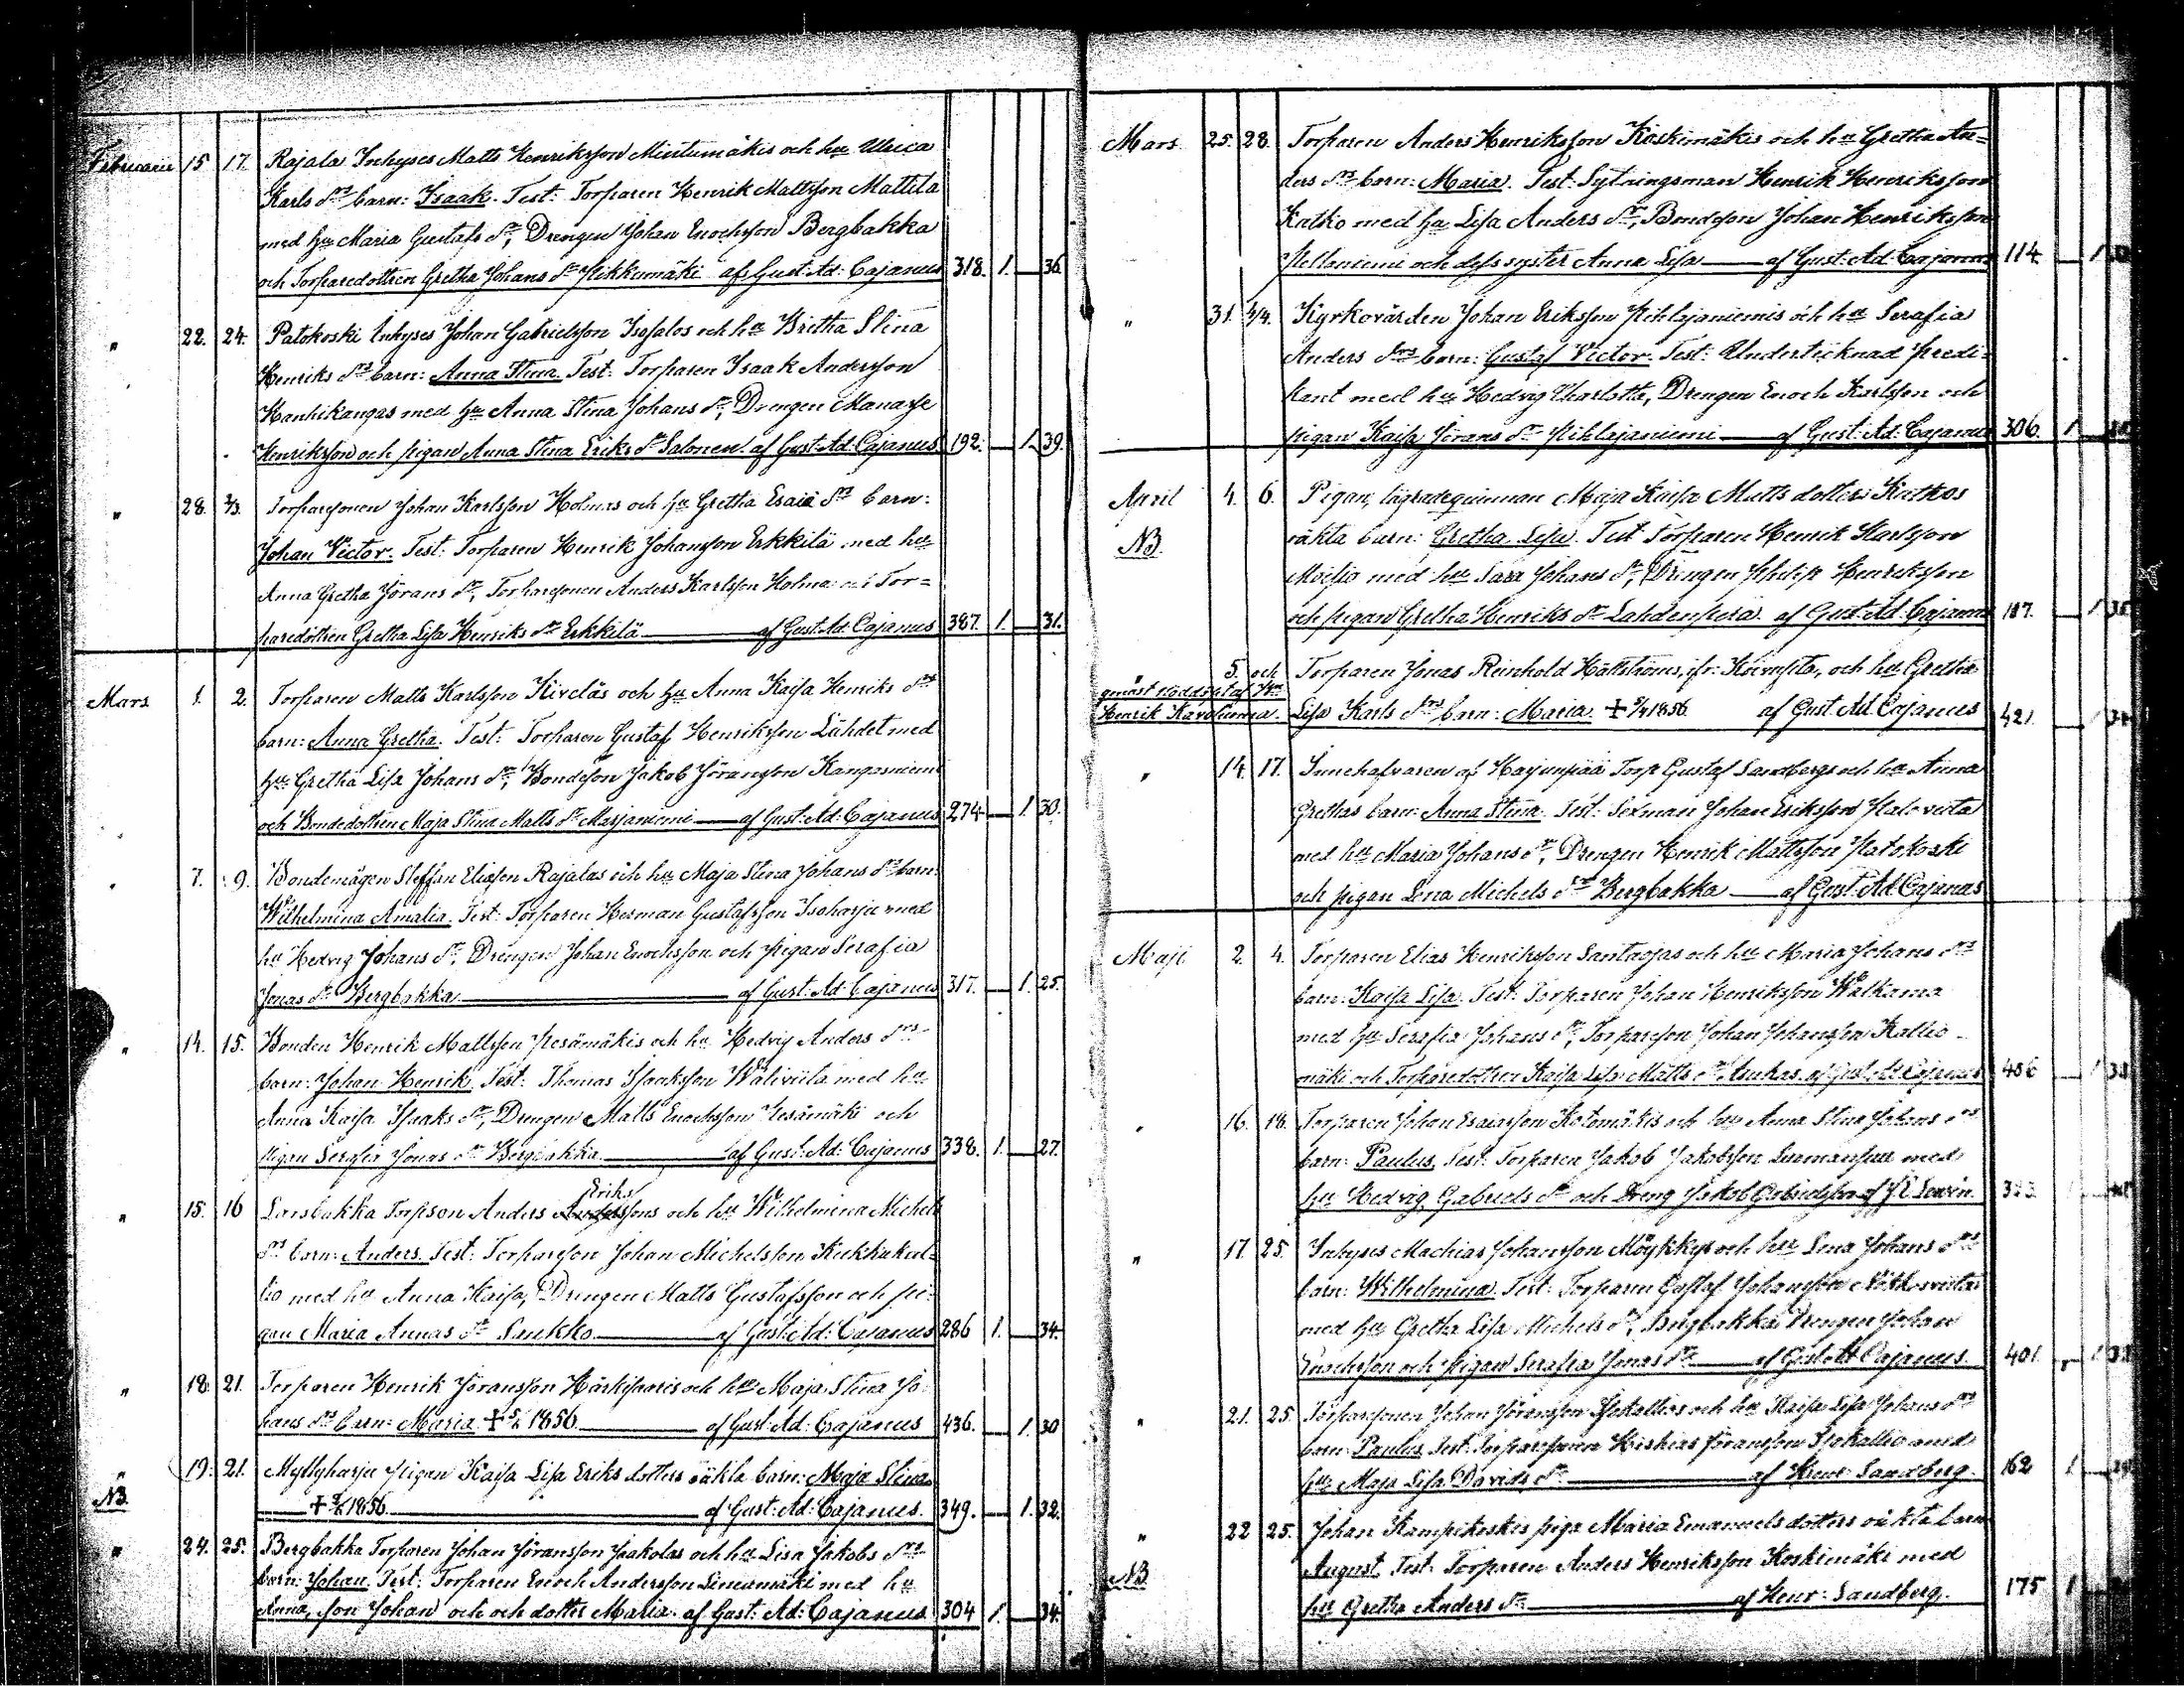 Februarii 15 17. Rajala Inhyses Matts Henriksson Mintumäkis och hu Ulrica
Karls drs barn: Isaak. Test: Torparen Henrik Mattsson Mattila
med hu Maria Gustafs dr, Drengen Johan Enochsson Bergbakka
och Torparedottren Gretha Johans dr af Gust: Ad: Cajanus 318. 1. — 36.
" 22. 24. Patokoski Inhyses Johan Gabrielsson Isosalos och hu Britha Stina
Henriks drs barn: Anna Stina. Test: Torparen Isaak Andersson
Kanhikangas med hu Anna Stina Johans dr, Drengen Manasse
Henriksson och pigan Anna Stina Eriks dr Salonen. af Gust: Ad: Cajanus 192. — 1. 39.
" 28. 2/3. Torparesonen Johan Karlsson Holmas och hu Gretha Esaiæ drs barn:
Johan Victor. Test: Torparen Henrik Johansson Erkkilä med hu
Anna Gretha Jörans dr, Torparesonen Anders Karlsson Holma och Tor=
paredottren Gretha Lisa Henriks dr Erkkilä — af Gust: Ad: Cajanus 387. 1. — 31.
Mars 1. 2. Torparen Matts Karlsson Kiveläs och hu Anna Kaisa Henriks drs
barn: Anna Gretha. Test: Torparen Gustaf Henriksson Lähdet med
hu Gretha Lisa Johans dr, Bondeson Jakob Jöransson Kangasniemi
och Bondedottren Maja Stina Matts dr Marjaniemi — af Gust: Ad: Cajanus 274 — 1. 30.
" 7. 9. Bondemågen Steffan Eliasson Rajalas och hu Maja Stina Johans drs barn:
Wilhelmina Amalia. Test: Torparen Herman Gustafsson Isoharju med
hu Hedvig Johans dr, Drengen Johan Enochsson och pigan Serafia
Jonas dr Bergbakka — af Gust: Ad: Cajanus 317. — 1. 25.
" 14. 15. Bonden Henrik Mattsson Pesämäkis och hu Hedvig Anders drs
barn: Johan Henrik. Test: Thomas Isaaksson Waliviita med hu
Anna Kaisa Isaaks dr, Drengen Matts Enochsson Pesämäki och
pigan Serafia Jonas dr Bergbakka — af Gust: Ad: Cajanus 338. 1. — 27.
Eriks
" 15. 16 Lansbakka Torpson Anders Anderssons och hu Wilhelmina Michels
drs barn: Anders. Test: Torpareson Johan Michelsson Kukkakal=
lio med hu Anna Kaisa, Drengen Matts Gustafsson och pi=
gan Maria Annas dr Saukko — af Gust: Ad: Cajanus 286 1. — 34.
" 18. 21. Torparen Henrik Jöransson Härkiporis och hu Maja Stina Jo-
hans drs barn: Maria. + 1856. — af Gust: Ad: Cajanus 436. — 1. 30
" 19. 21. Myllyharju Pigan Kaisa Lisa Eriks dotters oäkta barn: Maja Stina
NB. — + 1856. — af Gust: Ad: Cajanus. 349. — 1. 32.
" 24. 25. Bergbakka Torparen Johan Jöransson Jaakolas och hu Lisa Jakobs drs
barn: Johan. Test: Torparen Enoch Andersson Linemäki med hu
Anna, son Johan och och dotter Maria. af Gust: Ad: Cajanus 304 1. — 34.
Mars 25. 28. Torparen Anders Henriksson Koskimäkis och hu Gretha An=
ders drs barn: Maria. Test: Sytningsman Henrik Henriksson
Katko med hu Lisa Anders dr, Bondeson Johan Henriksson
och dess syster Anna Lisa — af Gust: Ad: Cajanus 114. — 1
" 31. 4/4. Kyrkovärden Johan Eriksson Pihlajaniemis och hu Serafia
Anders drs barn: Gustaf Victor. Test: Undertecknad Predi=
kant med hu Hedvig Charlotta, Drengen Enoch Karlsson och
pigan Kaisa Jörans dr Pihlajaniemi — af Gust: Ad: Cajanus 306. 1. —
April 4. 6. Pigan, lägradequinnan Maja Kaisa Matts dotters Katkos
NB. oäkta barn: Gretha Lisa. Test Torparen Henrik Karlsson
Moisio med hu Sara Johans dr, Drengen Philip Henriksson
och pigan Gretha Henriks dr Lahdenperä. af Gust: Ad: Cajanus 117. — 1
" 5. och Torparen Jonas Reinhold Hällströms, ifr: Kärmpts, och hu Gretha
genast nöddöpt af
Henrik Lisa Karls drs barn: Maria. + 1856. af Gust. Ad. Cajanus 421. —
" 14. 17. Innehafvaren af Harjunpää Torp Gustaf Sandbergs och hu Anna
Grethas barn: Anna Stina. Test: Sexman Johan Eriksson Paloviita
med hu Maria Johans dr, Drengen Henrik Mattsson Patokoski
och pigan Lena Michels dr Bergbakka — af Gust: Ad: Cajanus
Maji 2. 4. Torparen Elias Henriksson Santaojas och hu Maria Johans drs
barn: Kaisa Lisa. Test: Torparen Johan Henriksson Walkama
med hu Serafia Johans dr, Torpareson Johan Johansson Kallio-
mäki och Torparedottren Kaisa Lisa Matts dr af Gust. Ad. Cajanus 406 — 1
" 16. 18. Torparen Johan Esaiasson Kotomäkis och hu Anna Stina Johans drs
barn: Paulus. Test: Torparen Jakob Jakobsson med
hu Hedvig Gabriels dr och Dreng Jakob Gabrielsson af
" 17. 25. Inhyses Machias Johansson Möykkys och hu Lena Johans drs
barn: Wilhelmina. Test: Torparen Gustaf Johansson
med hu Gretha Lisa Michels dr, Bergbakka Drengen Johan
Enochsson och Pigan Serafia Jonas dr — af Gust. Ad Cajanus. 401. 1
" 21. 25. Torparesonen Johan Jöransson Isokallios och hu Kaisa Lisa Johans drs
barn: Paulus. Test: Torparesonen Hiskias Jöransson Isokallio med
hu Maja Lisa Davids dr — af Henr: Sandberg. 162 1 —
" 22 25. Johan Kampikoskis piga Maria Emanuels dotters oäkta barn
NB. August. Test: Torparen Anders Henriksson Koskimäki med
hu Gretha Anders dr — af Henr: Sandberg. 175 1 —